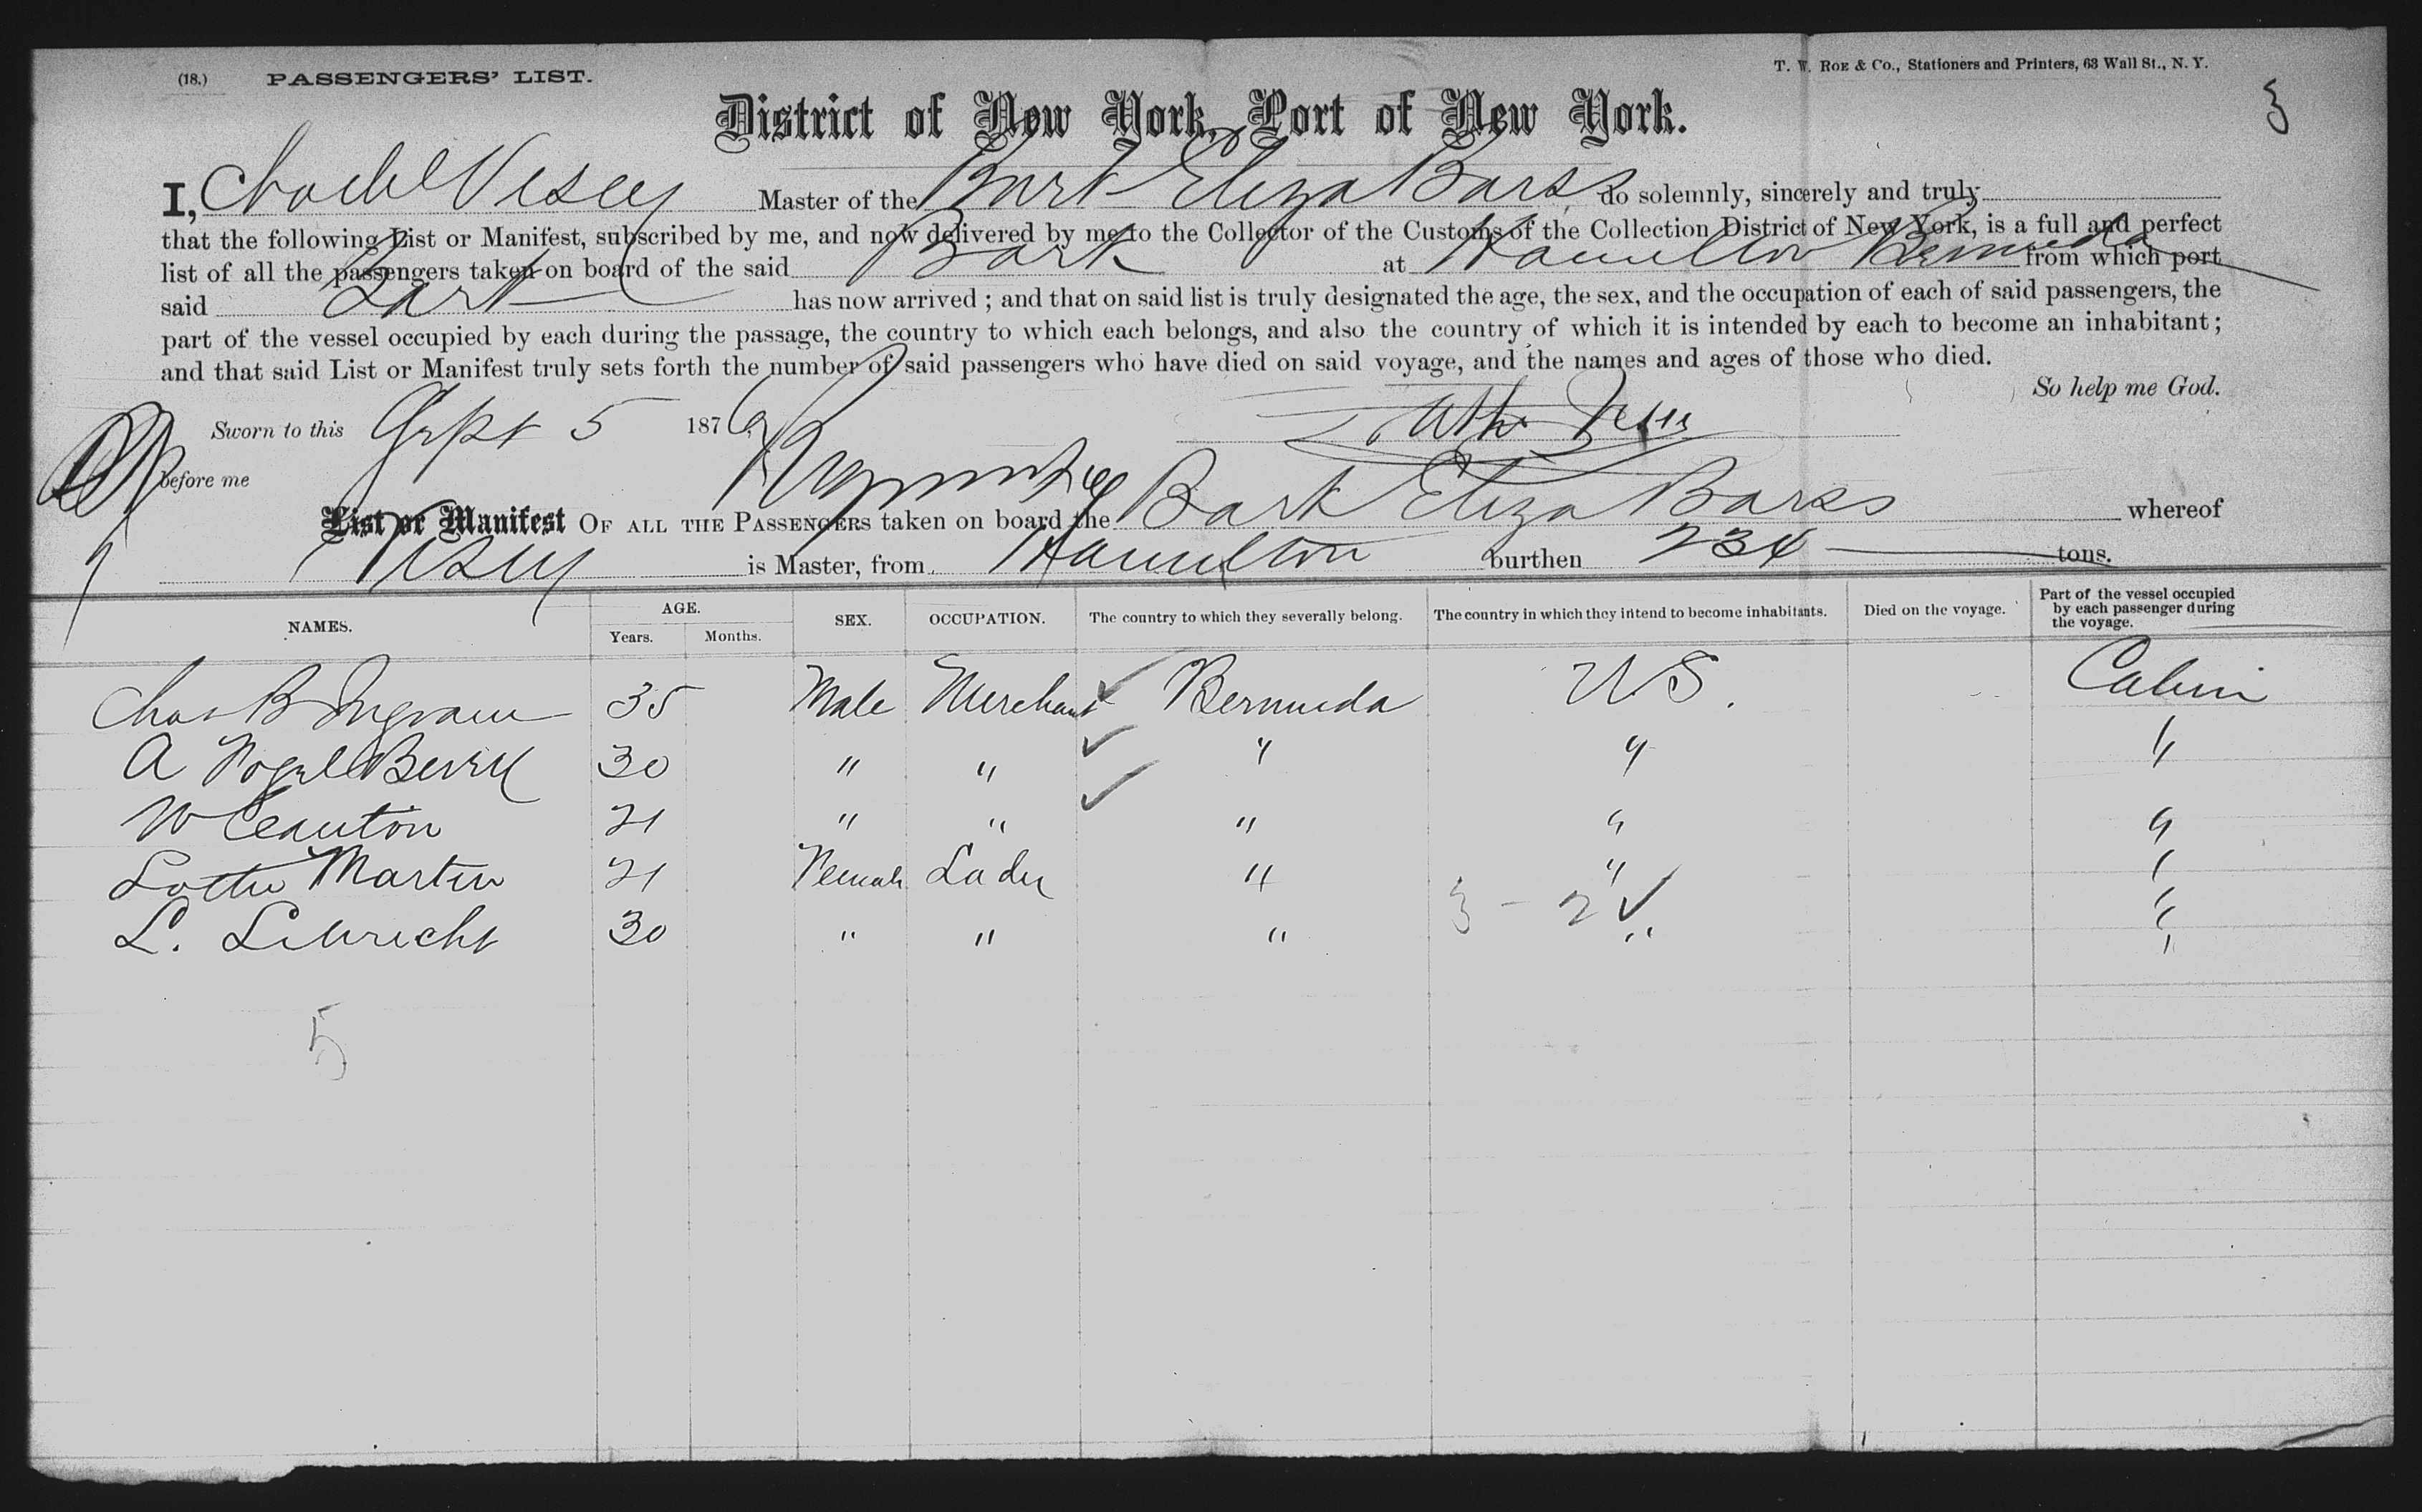 (18.) PASSENGERS' LIST. T. W. ROE & CO., Stationers and Printers, 63 Wall St., N. Y.
3
District of New York, Port of New York.
I, Vesey Master of the Bark Eliza Barss do solemnly, sincerely and truly
that the following List or Manifest, subscribed by me, and now delivered by me to the Collector of the Customs of the Collection District of New York, is a full and perfect
list of all the passengers taken on board of the said Bark at Hamilton Bermuda from which port
said Bark has now arrived ; and that on said list is truly designated the age, the sex, and the occupation of each of said passengers, the
part of the vessel occupied by each during the passage, the country to which each belongs, and also the country of which it is intended by each to become an inhabitant ;
and that said List or Manifest truly sets forth the number of said passengers who have died on said voyage, and the names and ages of those who died.
So help me God.
Sworn to this Sept 5 1876
before me
List or Manifest OF ALL THE PASSENGERS taken on board the Bark Eliza Barss whereof
Vesey is Master, from Hamilton burthen 234 tons.
NAMES. AGE. Years. Months. SEX. OCCUPATION. The country to which they severally belong. The country in which they intend to become inhabitants. Died on the voyage. Part of the vessel occupied by each passenger during the voyage.
Chas B Ingram 35 Male Merchant ✓ Bermuda U S. Cabin
A 30 " " ✓ " " "
W 21 " " ✓ " " "
Lottie Martin 21 Female Lady " " "
3 - 2 ✓
L. 30 " " " " "
5